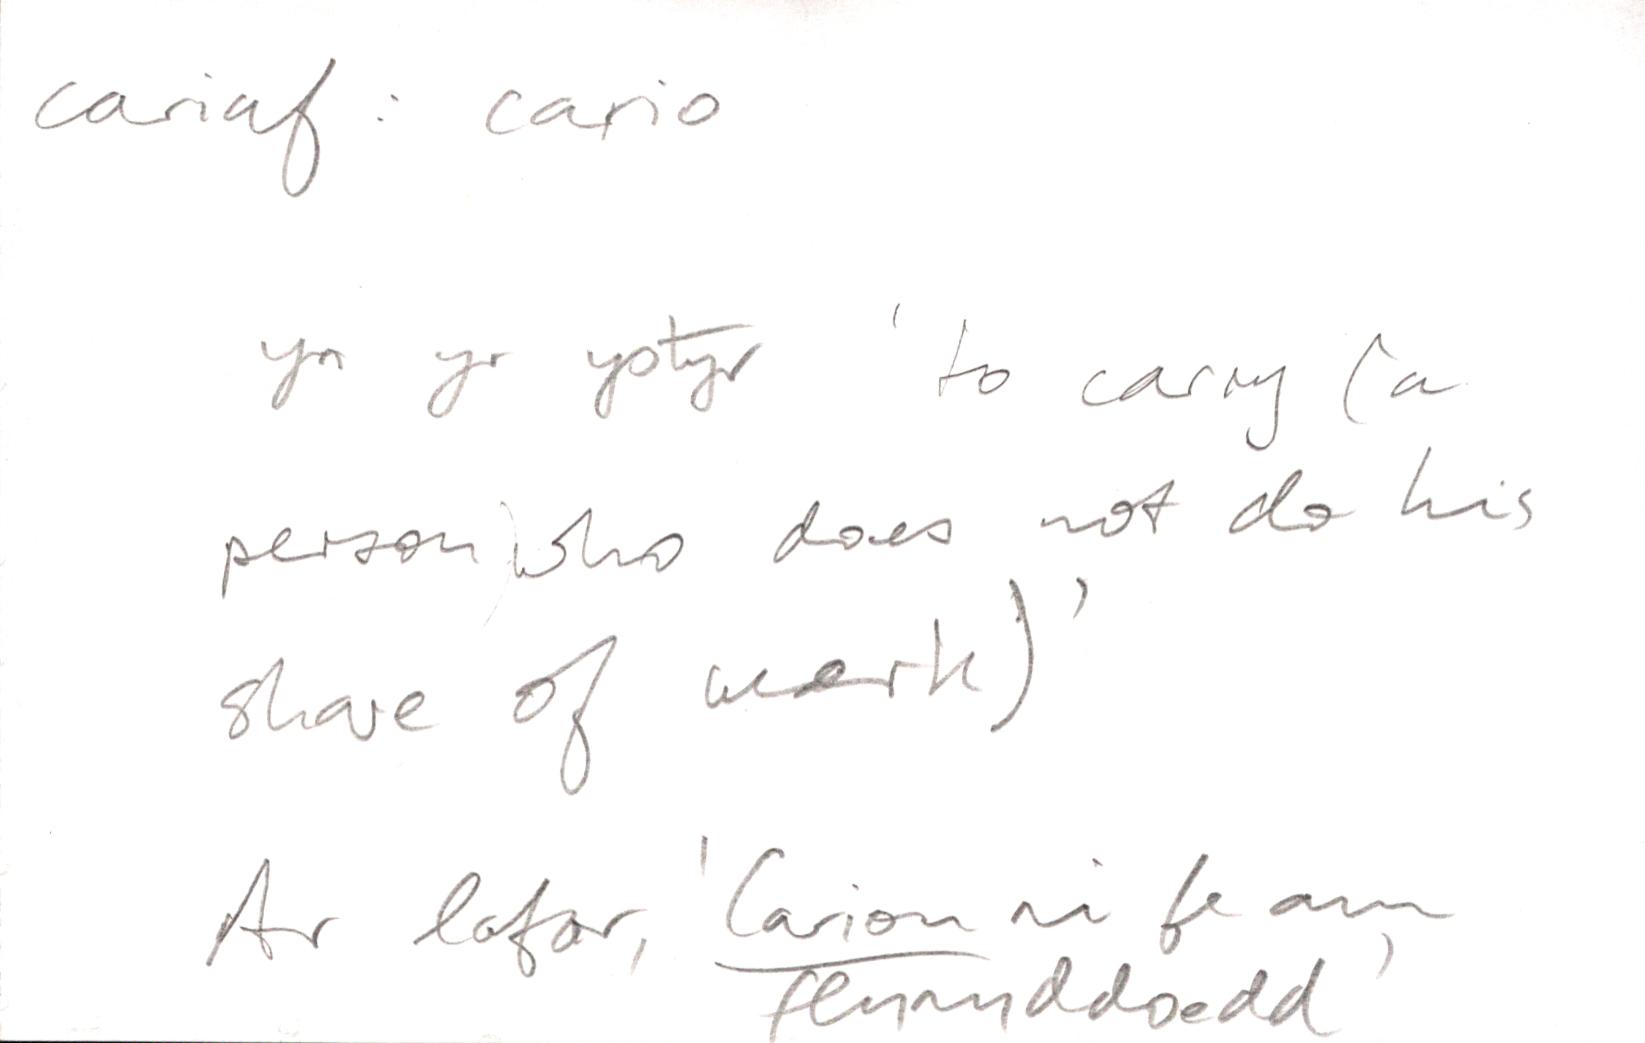 cariaf : cario
yn yr ystyr 'to carry (a
person) who does not do his
share of work)'
Ar lafar, 'Carion ni fe am
flynyddoedd'